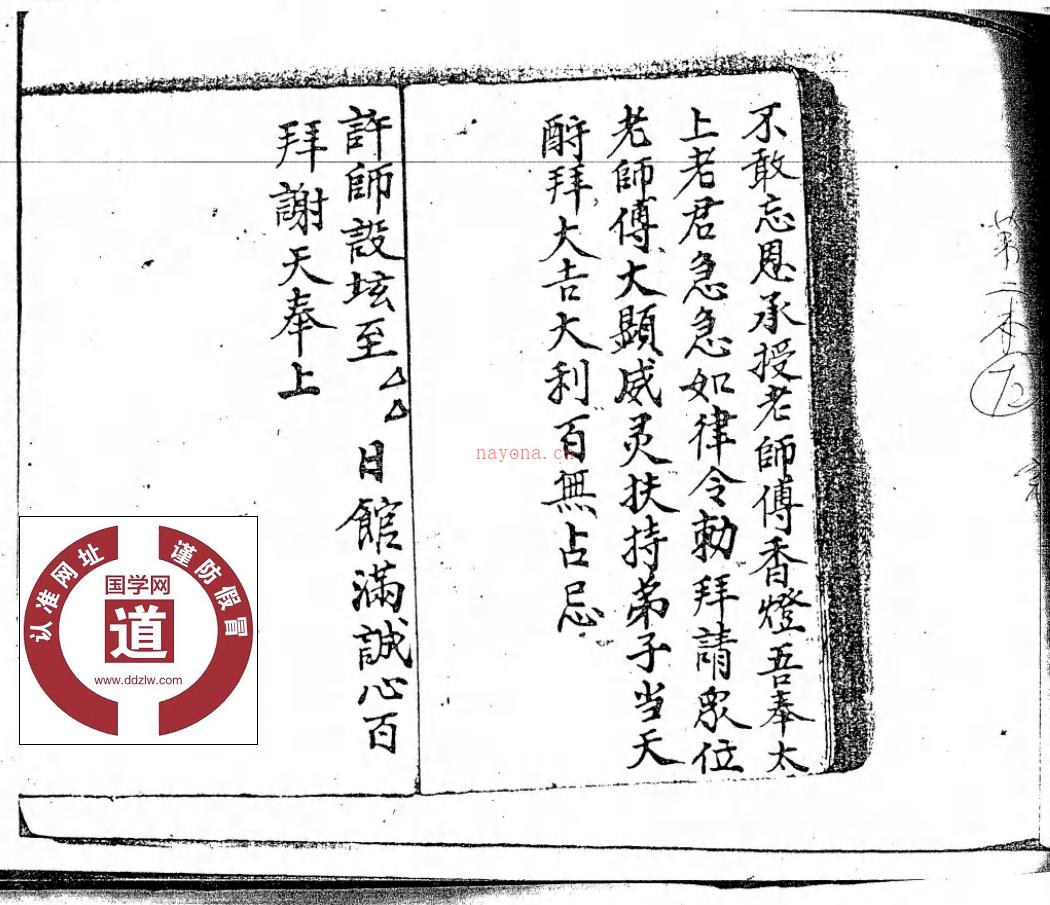 不敢忘恩承授老師傅香燈吾奉太
上老君急急如律令勅拜請眾位
老師傅大顯威灵扶持弟子当天
酧拜大吉大利百無占忌
許師設坛至△△日館滿誠心百
拜謝天奉上
第二本
12
nayona.cn
认准网址
谨防假冒
国学网
道
www.ddzlw.com